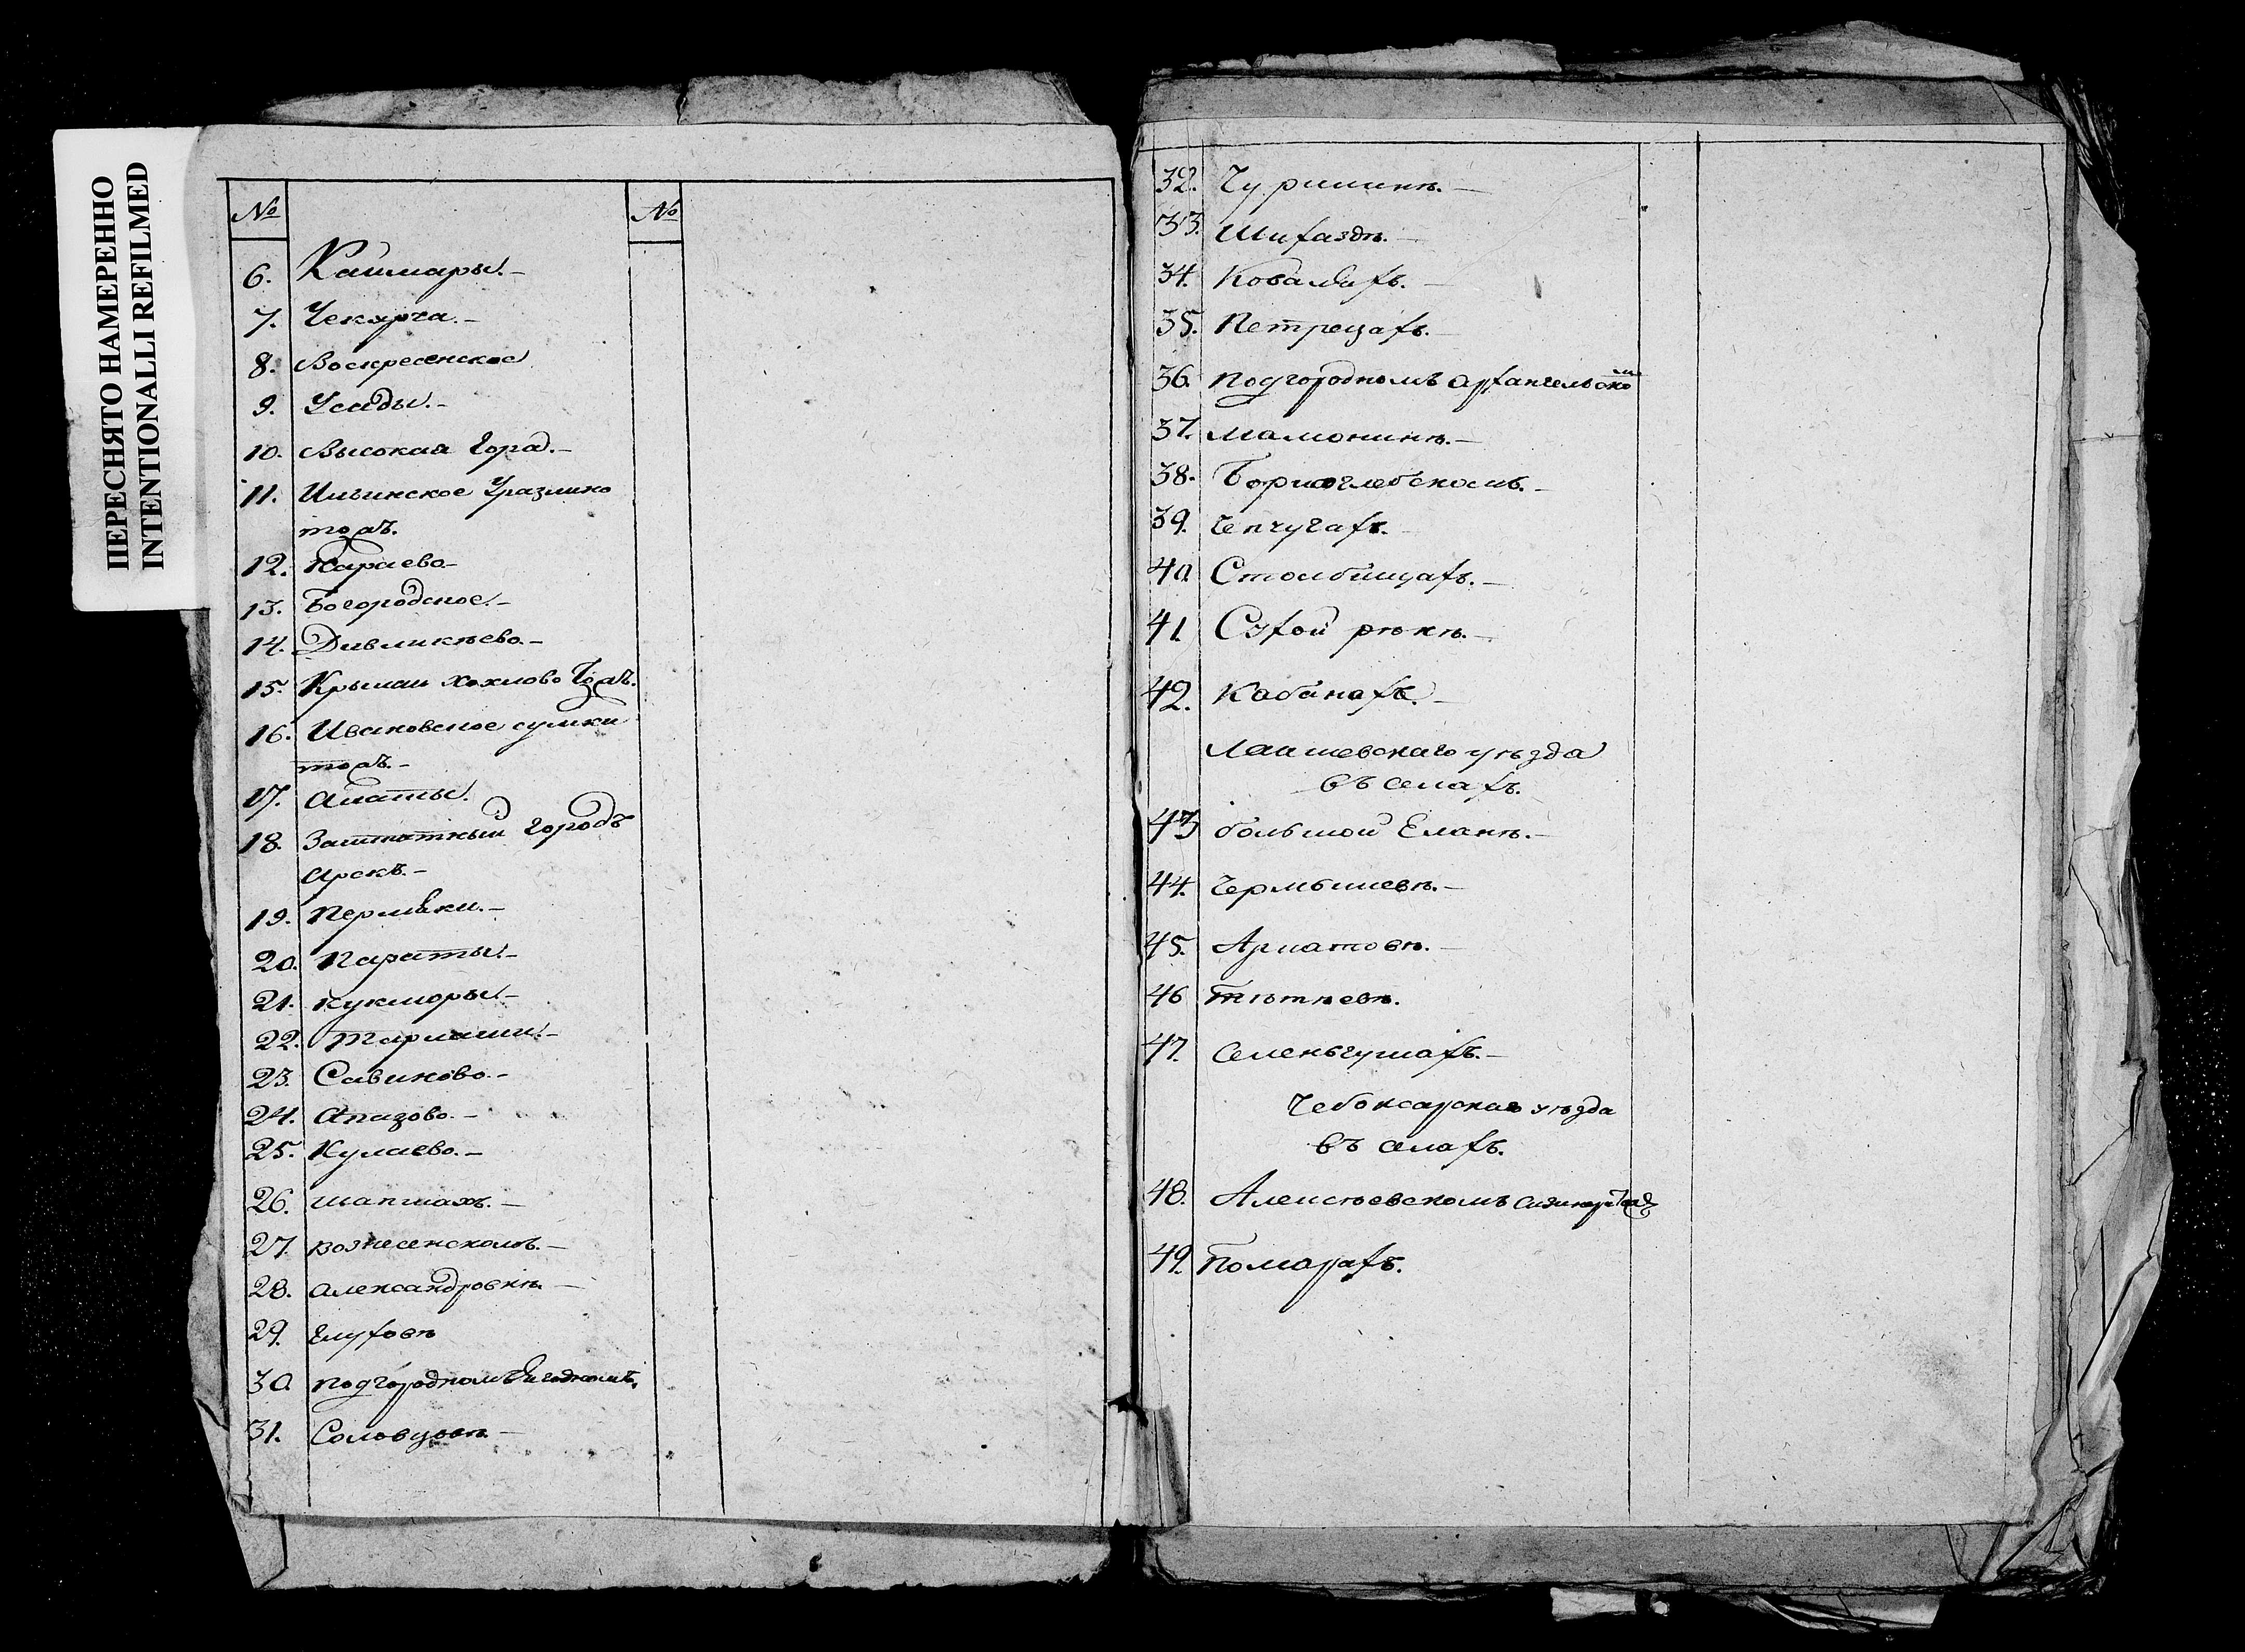 ПЕРЕСНЯТО НАМЕРЕННО
INTENTIONALLI REFILMED
№ №
6. Каймары.-
7. Чекурча.-
8. Воскресенское
9. Усады.-
10. Высокая Гора.-
11. Ильинское Уразлино
тож.
12. Караево-
13. Богородское.-
14. Дивликѣево.-
15. Крылаи Хохлово тож.
16. Ивановское сумки
тож.-
17. Алаты.
18. Заштатный городъ
Арскъ.-
19. Пермяки.-
20. Параты.-
21. Кукморы.-
22. Тарлаши.-
23. Савиново.-
24. Апазово.-
25. Кулаево.-
26. Шапшахъ.-
27. Вознесенскомъ.-
28. Александровкѣ.-
29. Глуховѣ
30. Подгородномъ Ягодномъ.
31. Соловцовѣ.-
32. Чурилинѣ.-
33. Шихаздѣ.-
34. Коваляхъ.-
35. Петрецахъ.-
36. Подгородномъ Архангельско
м
37. Мамонинѣ.-
38. Борисоглебскомъ.-
39. Чепчугахъ.-
40. Столбищахъ.-
41. Сухой рѣкѣ.-
42. Кабанахъ.-
Лаишевскаго уѣзда
въ селахъ.
43 большой Еланѣ.-
44. Чермышевѣ.-
45. Арматовѣ.-
46 Тѣтѣевѣ.
47. Селенгушахъ.-
Чебоксарскаго уѣзда
въ селахъ.
48. Алексѣевскомъ
49. Помарахъ.